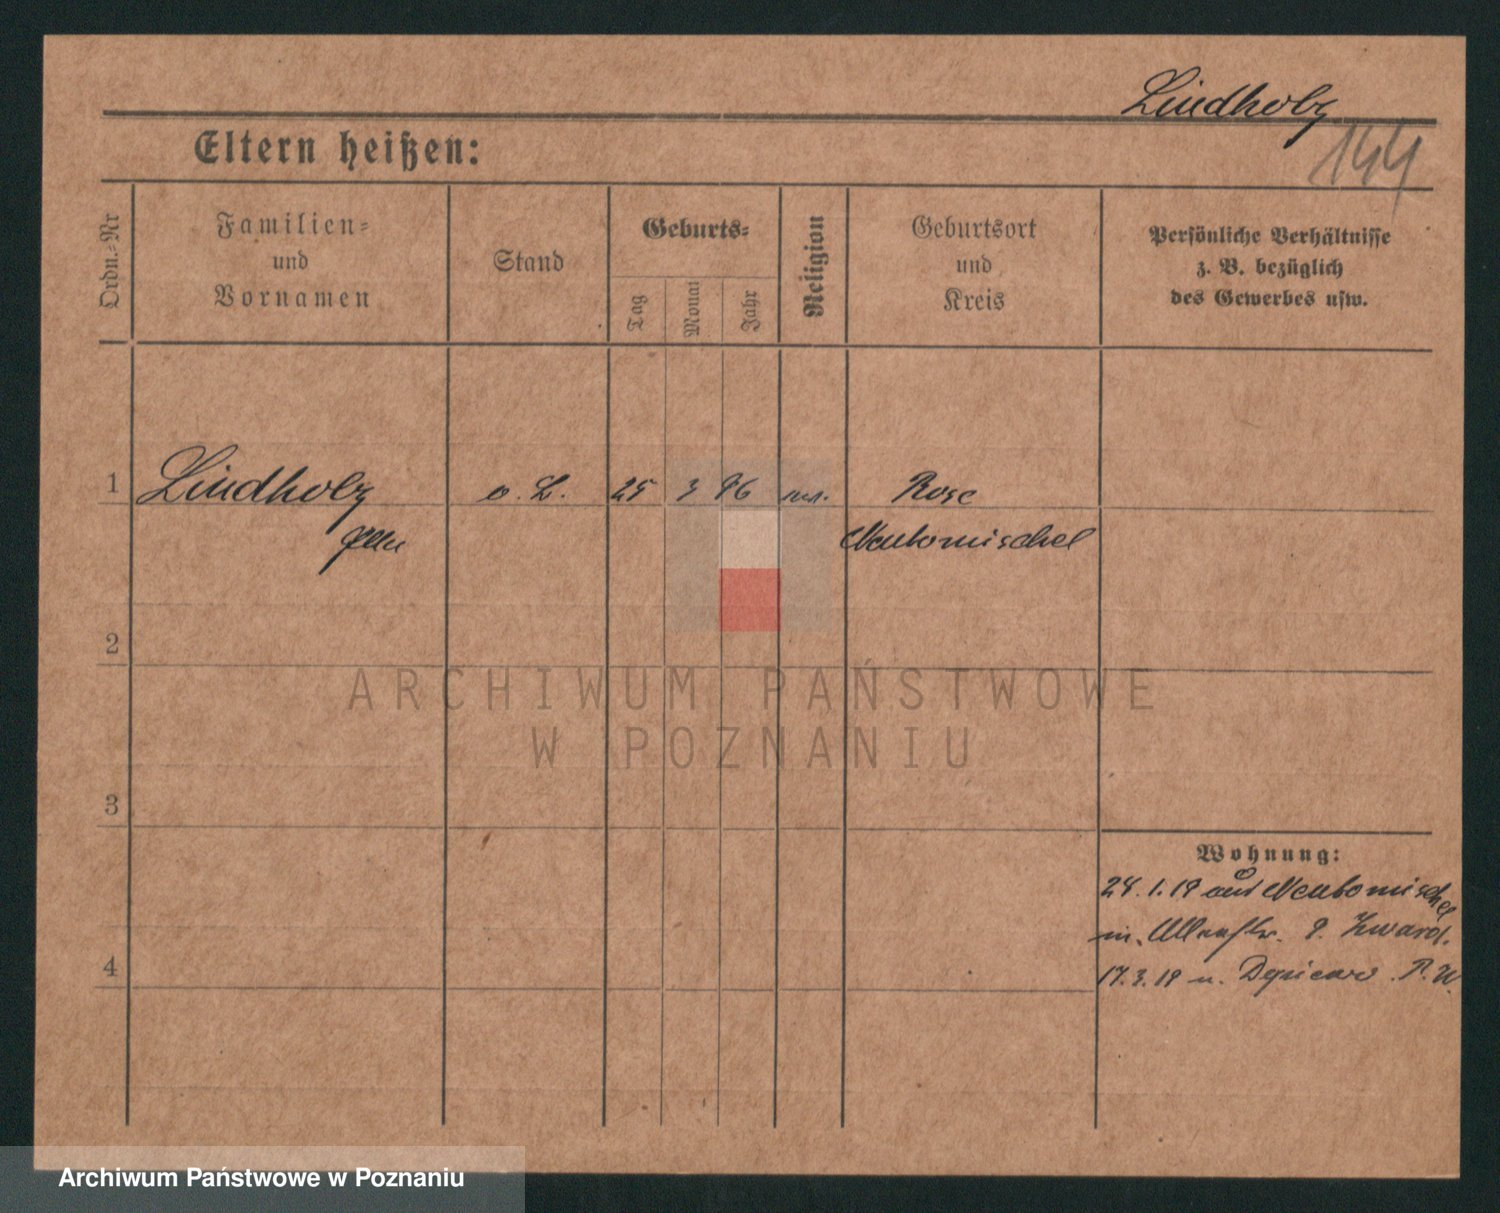 Lindholz
144
Eltern heißen:
Ordn.-Nr
Familien-
und
Vornamen
Stand
Geburts-
Tag
Monat
Jahr
Religion
Geburtsort
und
Kreis
Persönliche Verhältnisse
z. B. bezüglich
des Gewerbes usw.
1 Lindholz o. L. 25 3 96 Rose
Neutomischel
2
ARCHIWUM PAŃSTWOWE
W POZNANIU
3
Wohnung:
24.1.19 aus Neutomischel
17.3.19 n.
4
Archiwum Państwowe w Poznaniu